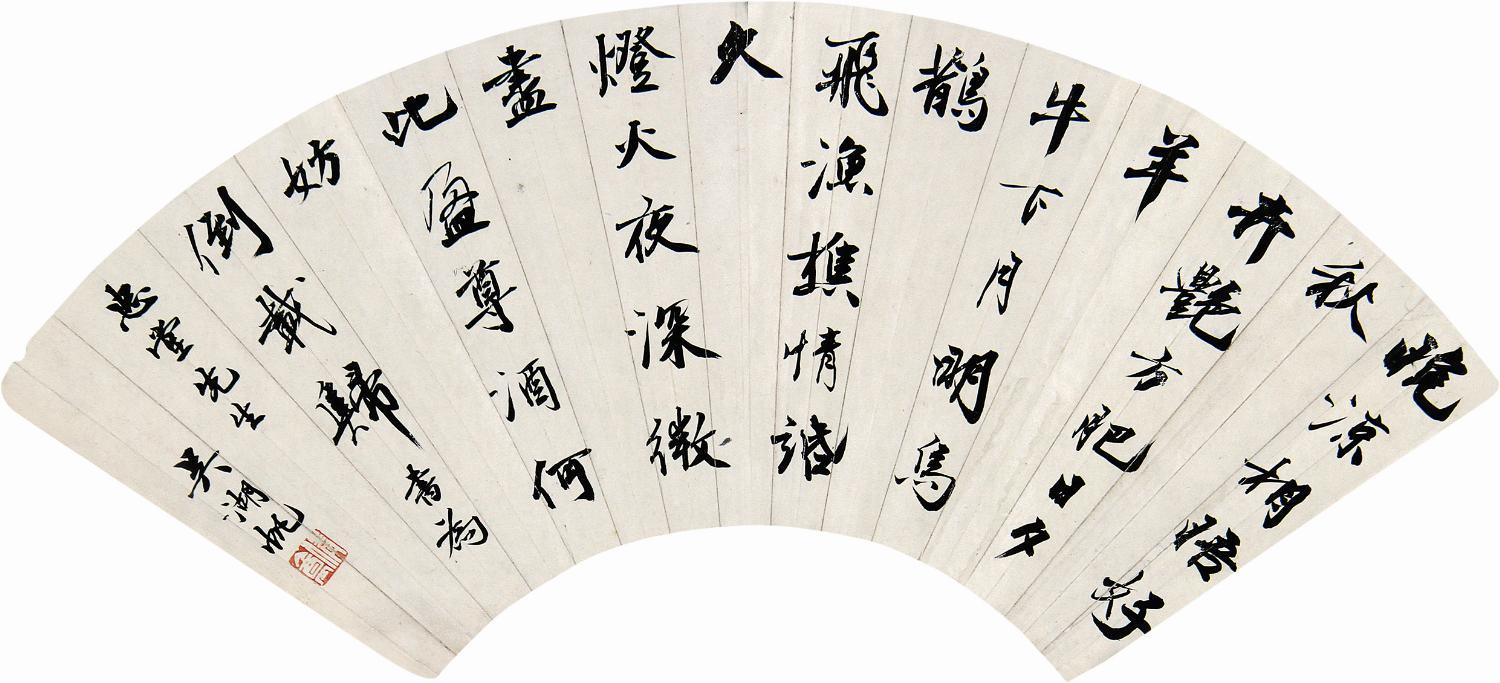 晚凉相悟好
秋
卉艷方肥日夕
羊
牛下月明烏
鵲
飛漁樵情諳
久
燈火夜深微
盡
此盈尊酒何
妨
倒載歸書為
忠堂先生
吳湖帆